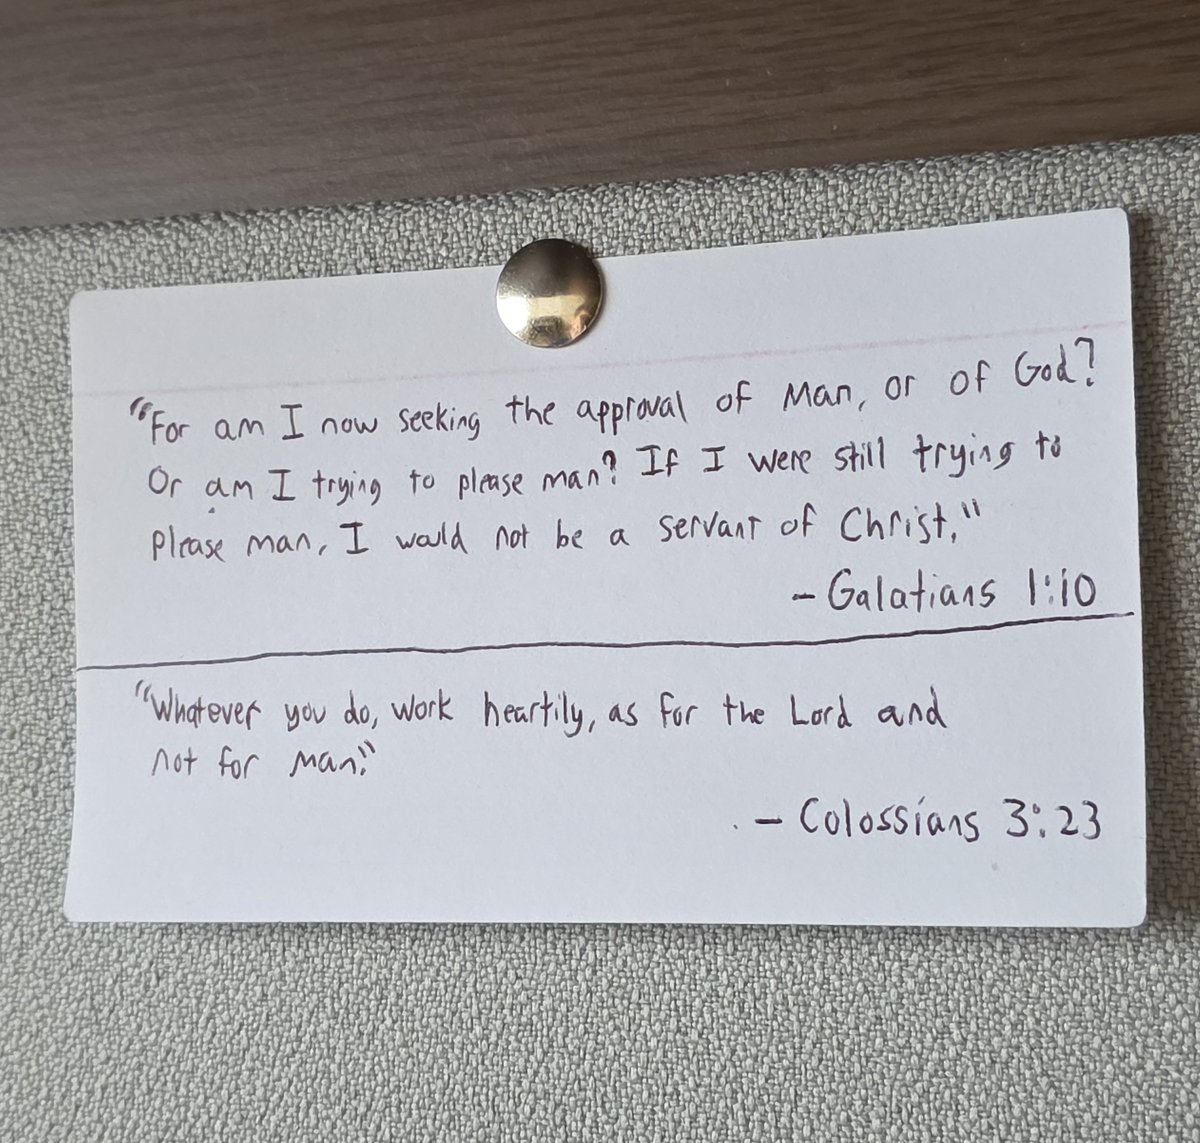 "For am I now seeking the approval of man, or of God?
Or am I trying to please man? If I were still trying to
please man, I would not be a servant of Christ."
- Galatians 1:10
"Whatever you do, work heartily, as for the Lord and
not for man."
- Colossians 3:23